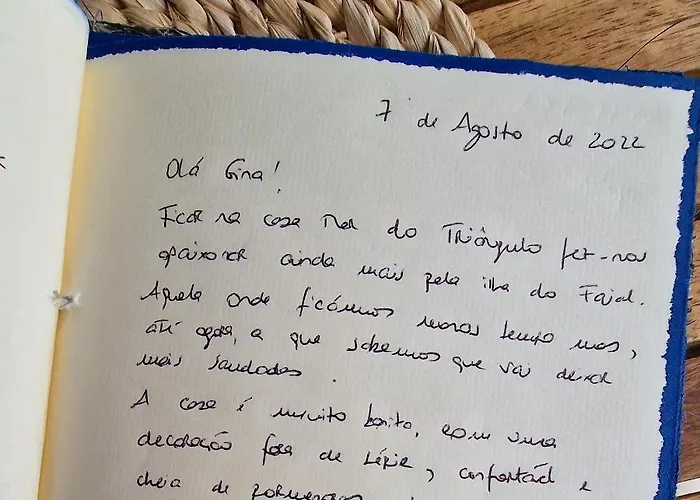 7 de Agosto de 2022
Olá Gina!
Ficar na casa Mar do Triângulo fez-nos
apaixonar ainda mais pela ilha do Faial.
Aquela onde ficámos menos tempo mas,
até agora, a que sabemos que vai deixar
mais saudades.
A casa é muito bonita, com uma
decoração fora de série, confortável e
cheia de pormenores